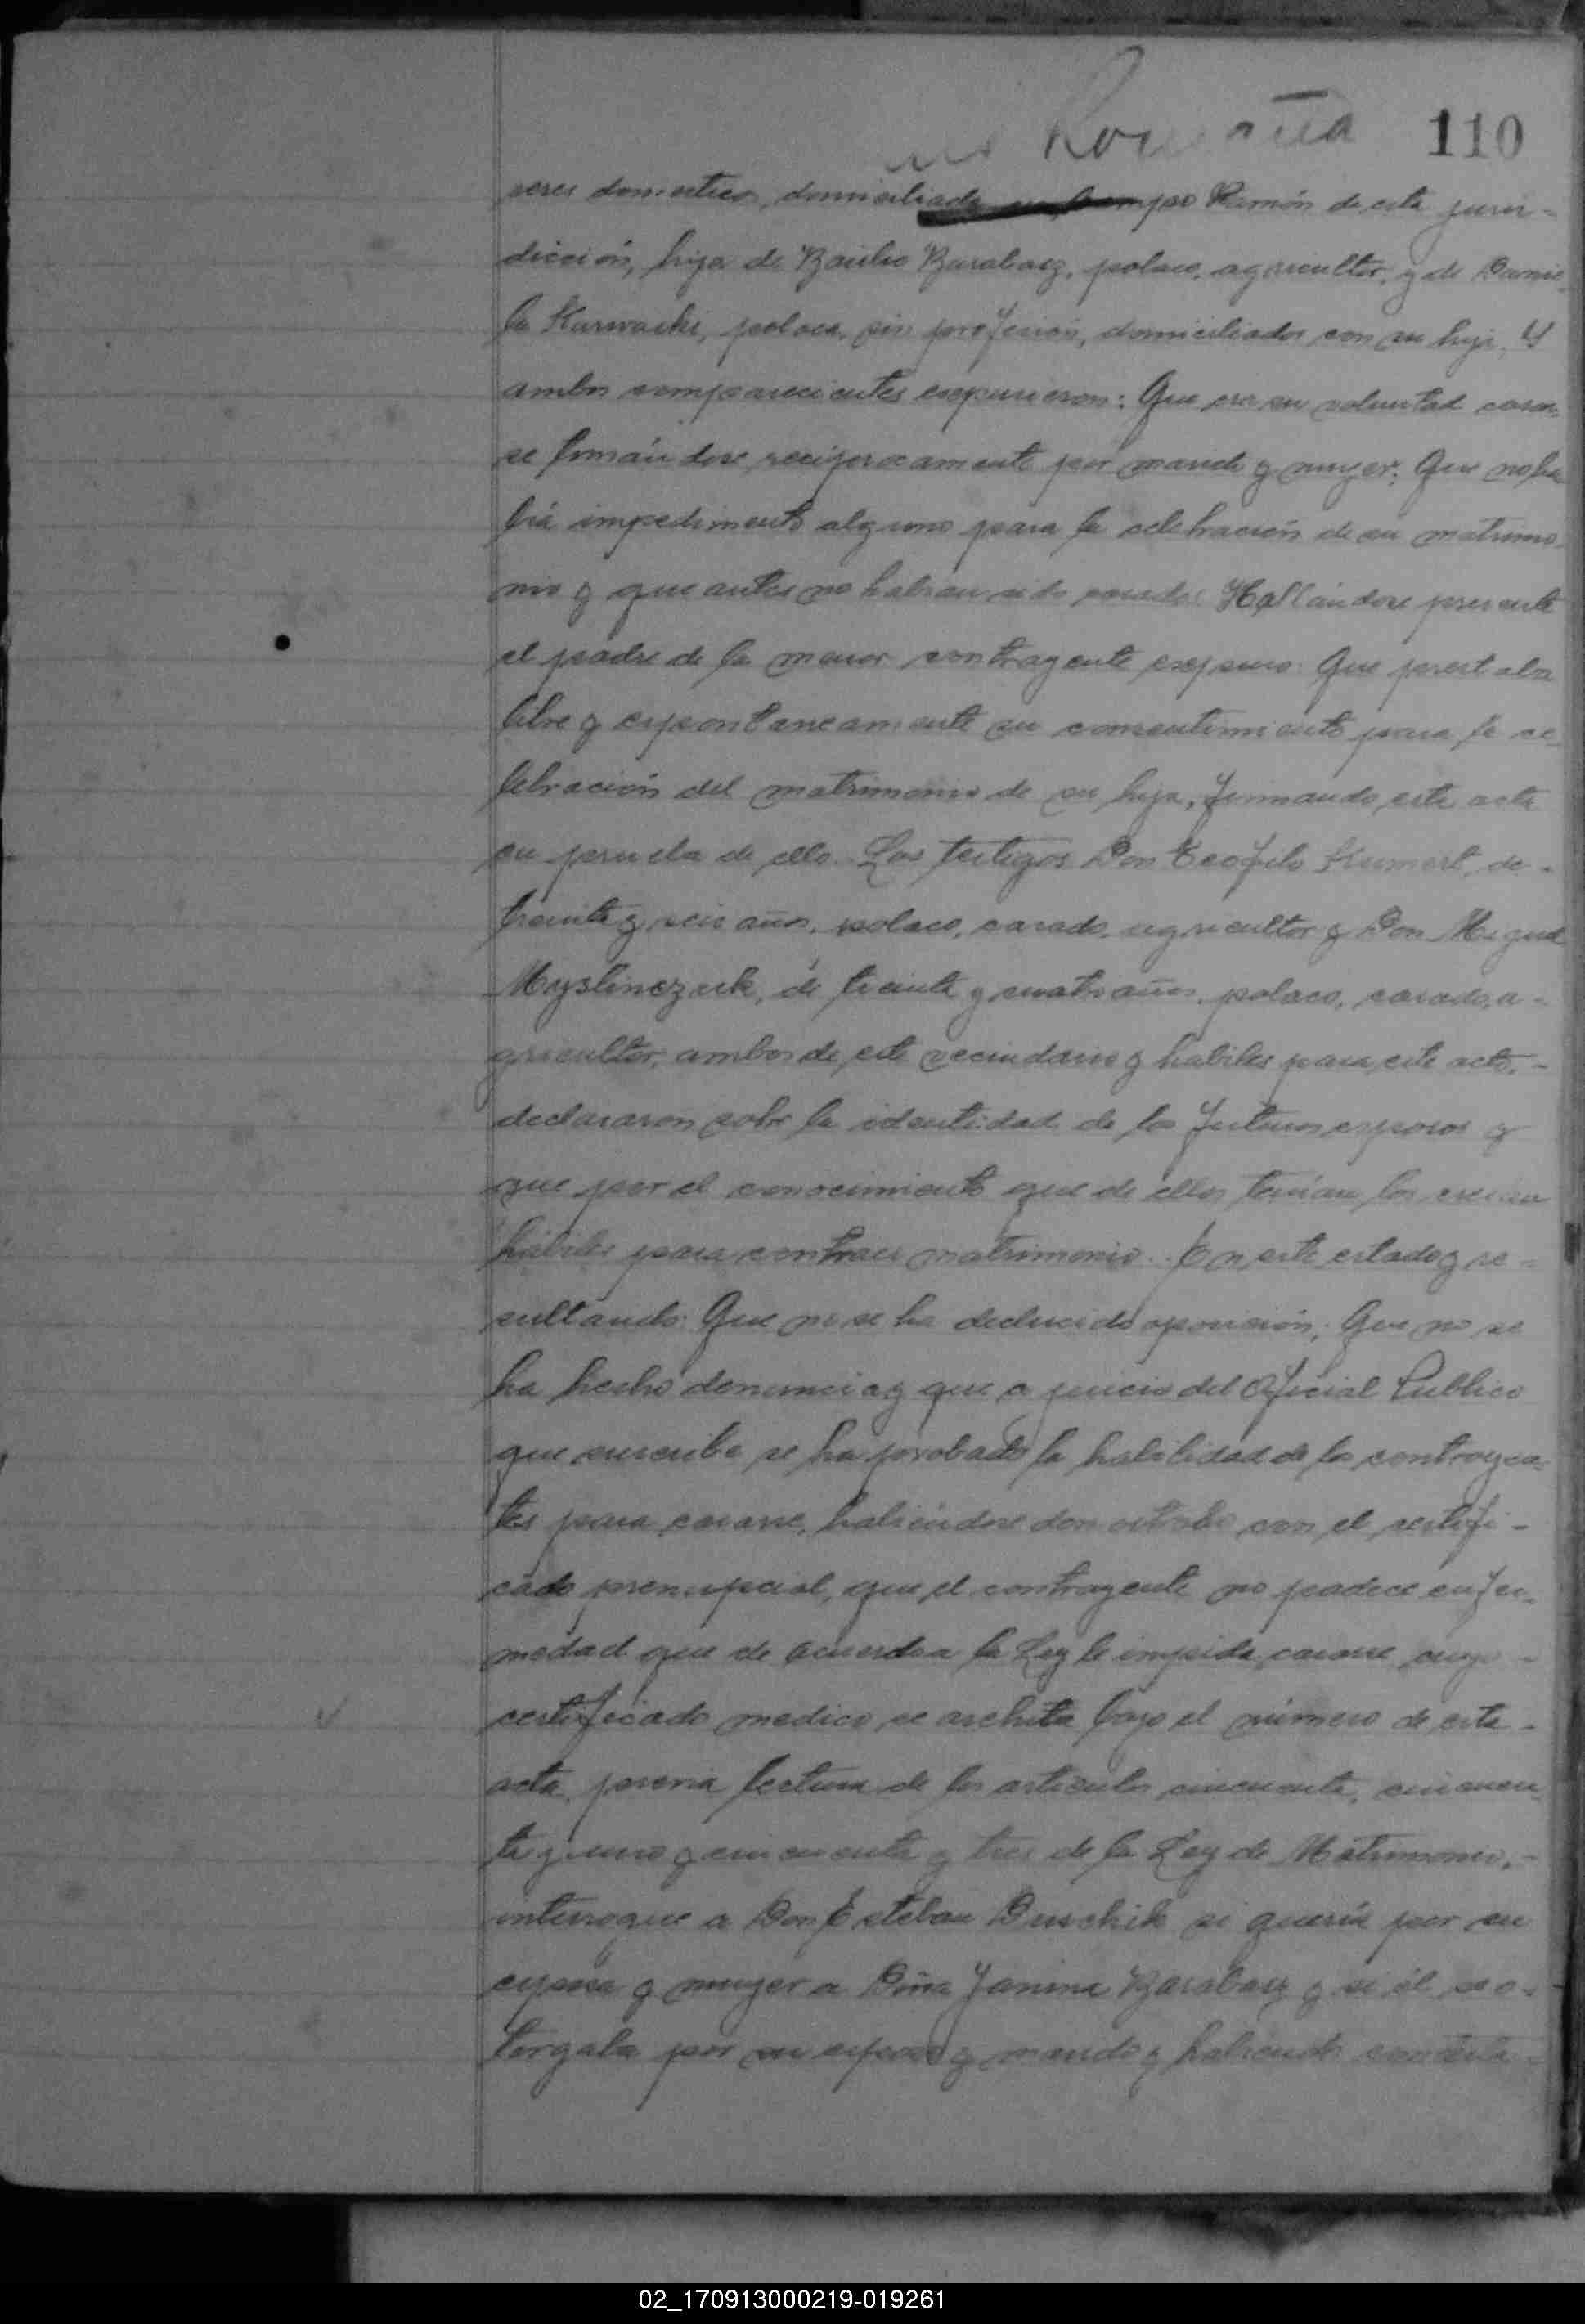 110
seres domesticos, domiciliada en Campo Ramón de esta juris-
dicción, hija de Basilio Barabasz, polaco, agricultor, y de Danie-
la Karwacki, polaca, sin profesión, domiciliados con su hija. Y
ambos comparecientes expusieron: Que era su voluntad casar-
se tomándose recíprocamente por marido y mujer; Que no ha
bía impedimento alguno para la celebración de su matrimo-
nio y que antes no habian sido casados Hallándose presente
el padre de la menor contrayente expuso: Que prestaba
libre y espontaneamente su consentimiento para la ce-
lebración del matrimonio de su hija, firmando este acta
en prueba de ello. Los testigos Don Teofilo Kumert, de-
treinta y seis años, polaco, casado, agricultor y Don Miguel
Myslinczuk, de treinta y cuatro años, polaco, casado, a-
gricultor, ambos de este vecindario y habiles para este acto,-
declararon sobre la identidad de los futuros esposos y
que por el conocimiento que de ellos tenían los creian
hábiles para contraer matrimonio. En este estado y re-
sultando: Que no se ha deducido oposición; Que no se
ha hecho denuncia y que a juicio del Oficial Publico
que suscribe se ha probado la habilidad de los contrayen-
tes para casarse, habiéndose demostrado con el certifi-
cado prenupcial, que el contrayente no padece enfer-
medad que de acuerdo a la Ley le impida casarse cuyo-
certificado medico se archiva bajo el número de esta-
acta, previa lectura de los articulos cincuenta, cincuen
ta y uno y cincuenta y tres de la Ley de Matrimonio,-
interrogue a Don Esteban Buschik si quería por su
esposa y mujer a Doña Janina Barabasz y si él se o-
torgaba por su esposo y marido y habiendo contesta-
02_170913000219-019261